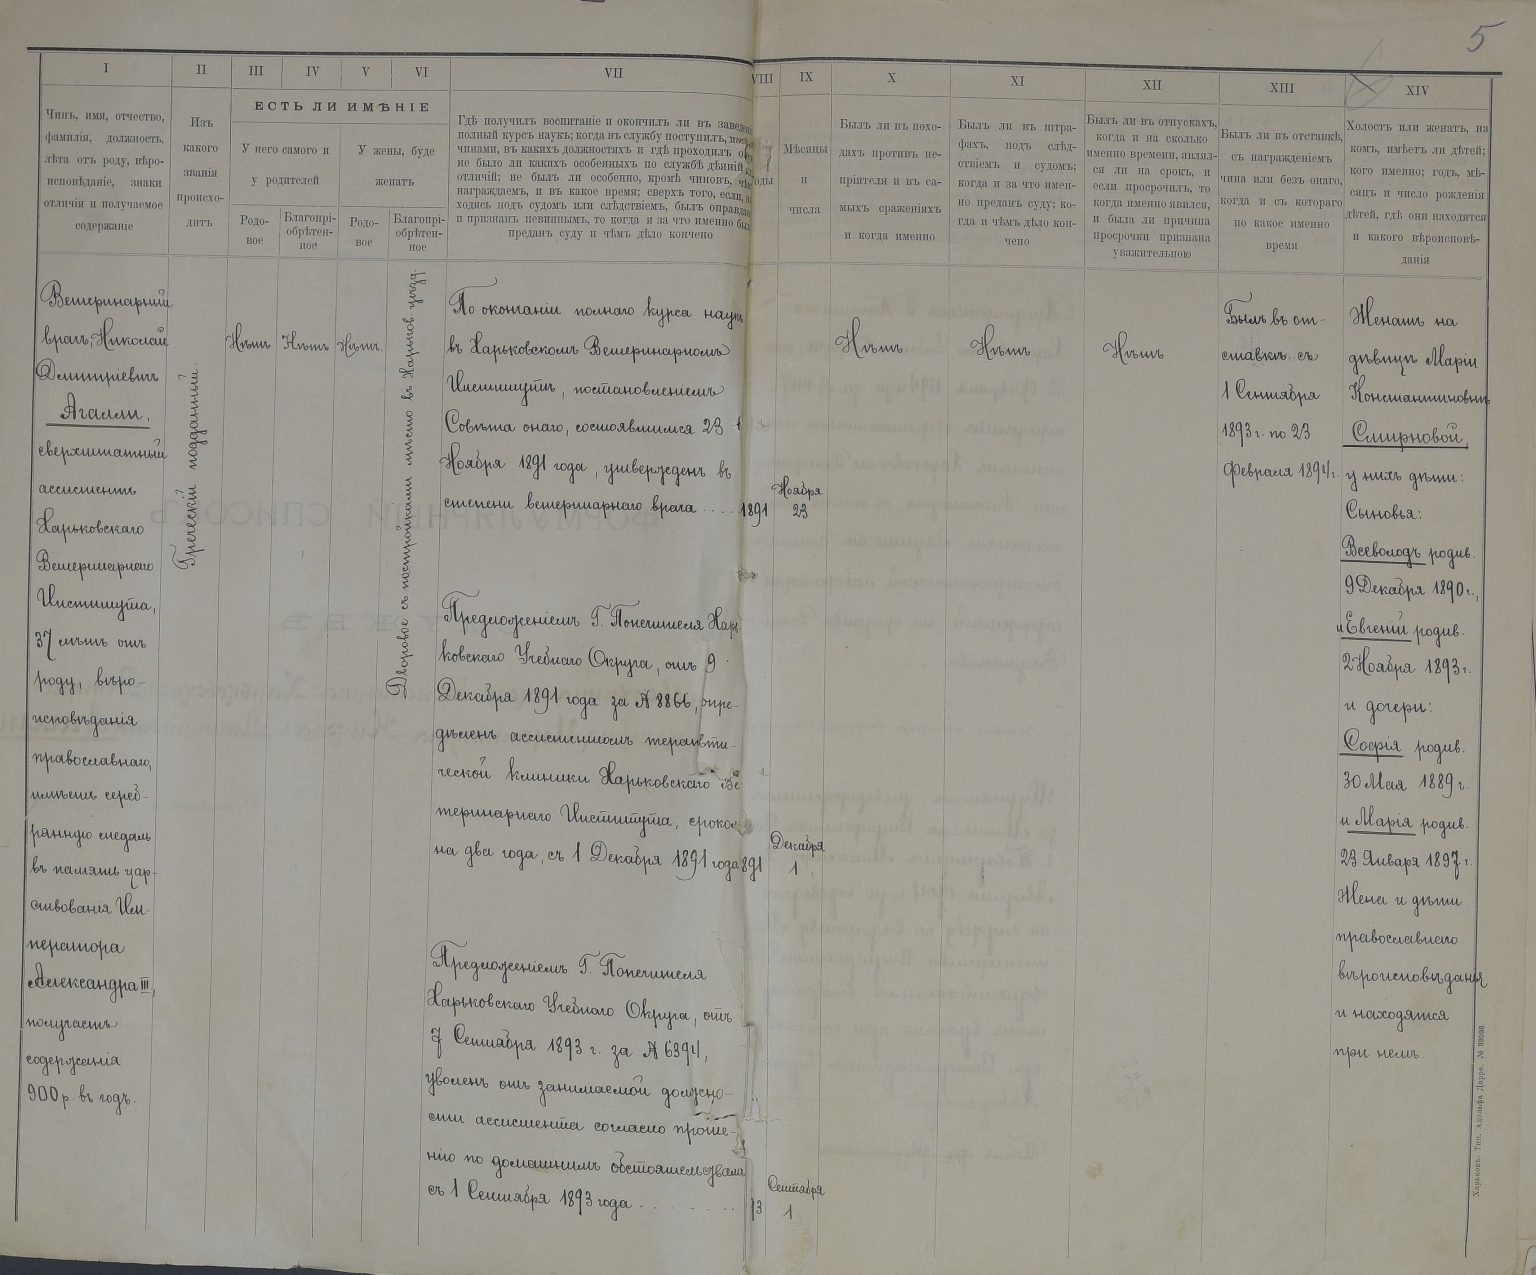 5
I
II
III
IV
V
VI
VII
VIII
IX
X
XI
XII
XIII
XIV
Чинъ, имя, отчество,
фамилія, должность,
лѣта отъ роду, вѣро-
исповѣданіе, знаки
отличія и получаемое
содержаніе
Изъ
какого
званія
происхо-
дитъ
ЕСТЬ ЛИ ИМѢНІЕ
У него самого и
у родителей
У жены, буде
женатъ
Родо-
вое
Благопрі-
обрѣтен-
ное
Родо-
вое
Благопрі-
обрѣтен-
ное
Гдѣ получилъ воспитаніе и окончилъ ли въ заведен
полный курсъ наукъ; когда въ службу поступилъ,
чинами, въ какихъ должностяхъ и гдѣ проходилъ
не было ли какихъ особенныхъ по службѣ дѣяній
отличій; не былъ ли особенно, кромѣ чиновъ,
награждаемъ, и въ какое время; сверхъ того, если,
ходясь подъ судомъ или слѣдствіемъ, былъ оправдан
и признанъ невиннымъ, то когда и за что именно был
преданъ суду и чѣмъ дѣло кончено
оды
Мѣсяцы
и
числа
Былъ ли въ похо-
дахъ противъ не-
пріятеля и въ са-
мыхъ сраженіяхъ
и когда именно
Былъ ли въ штра-
фахъ, подъ слѣд-
ствіемъ и судомъ;
когда и за что имен-
но преданъ суду; ко-
гда и чѣмъ дѣло кон-
чено
Былъ ли въ отпускахъ,
когда и на сколько
именно времени, являл-
ся ли на срокъ, и
если просрочилъ, то
когда именно явился,
и была ли причина
просрочки признана
уважительною
Былъ ли въ отставкѣ,
съ награжденіемъ
чина или безъ онаго,
когда и съ котораго
по какое именно
время
Холостъ или женатъ, на
комъ, имѣетъ ли дѣтей;
кого именно; годъ, мѣ-
сяцъ и число рожденія
дѣтей, гдѣ они находятся
и какого вѣроисповѣ-
данія
Ветеринарный
врачъ, Николай
Дмитріевичъ
Агалли,
сверхштатный
ассистентъ
Харьковскаго
Ветеринарнаго
Института,
37 лѣтъ отъ
роду, вѣро-
исповѣданія
православнаго,
имѣетъ сереб-
рянную медаль
въ память цар-
ствованія Им-
ператора
Александра III,
получаетъ
содержанія
900 р. въ годъ.
Греческій подданный.
Нѣтъ
Нѣтъ
Нѣтъ.
Дворовое съ постройками мѣсто въ Харьков. уѣздѣ.
По окончаніи полнаго курса наукъ
въ Харьковскомъ Ветеринарномъ
Институтѣ, постановленіемъ
Совѣта онаго, состоявшимся 23
Ноября 1891 года, утвержденъ въ
степени ветеринарнаго врача ....
1891
Ноября
23
Предложеніемъ Г. Попечителя Харь-
ковскаго Учебнаго Округа, отъ 9
Декабря 1891 года за № 8866, опре-
дѣленъ ассистентомъ терапевти-
ческой клиники Харьковскаго Ве
теринарнаго Института, срокомъ
на два года, съ 1 Декабря 1891 года
891
Декабря
1
Предложеніемъ Г. Попечителя
Харьковскаго Учебнаго Округа, отъ
7 Сентября 1893 г. за № 6394,
уволенъ отъ занимаемой должно-
сти ассистента согласно проше-
нію по домашнимъ обстоятельствамъ
съ 1 Сентября 1893 года . . . . . . .
93
Сентября
1
Нѣтъ.
Нѣтъ.
Нѣтъ
Былъ въ от-
ставкѣ съ
1 Сентября
1893 г. по 23
Февраля 1894 г.
Женатъ на
дѣвицѣ Маріи
Константиновнѣ
Смирновой,
у нихъ дѣти:
Сыновья:
Всеволодъ родив.
9 Декабря 1890 г.,
и Евгеній родив.
2 Ноября 1893 г.
и дочери:
Софія родив.
30 Мая 1889 г.
и Марія родив.
23 Января 1897 г.
Жена и дѣти
православнаго
вѣроисповѣданія
и находятся
при немъ.
Харьковъ. Тип. Адольфа Дарре. № 39598